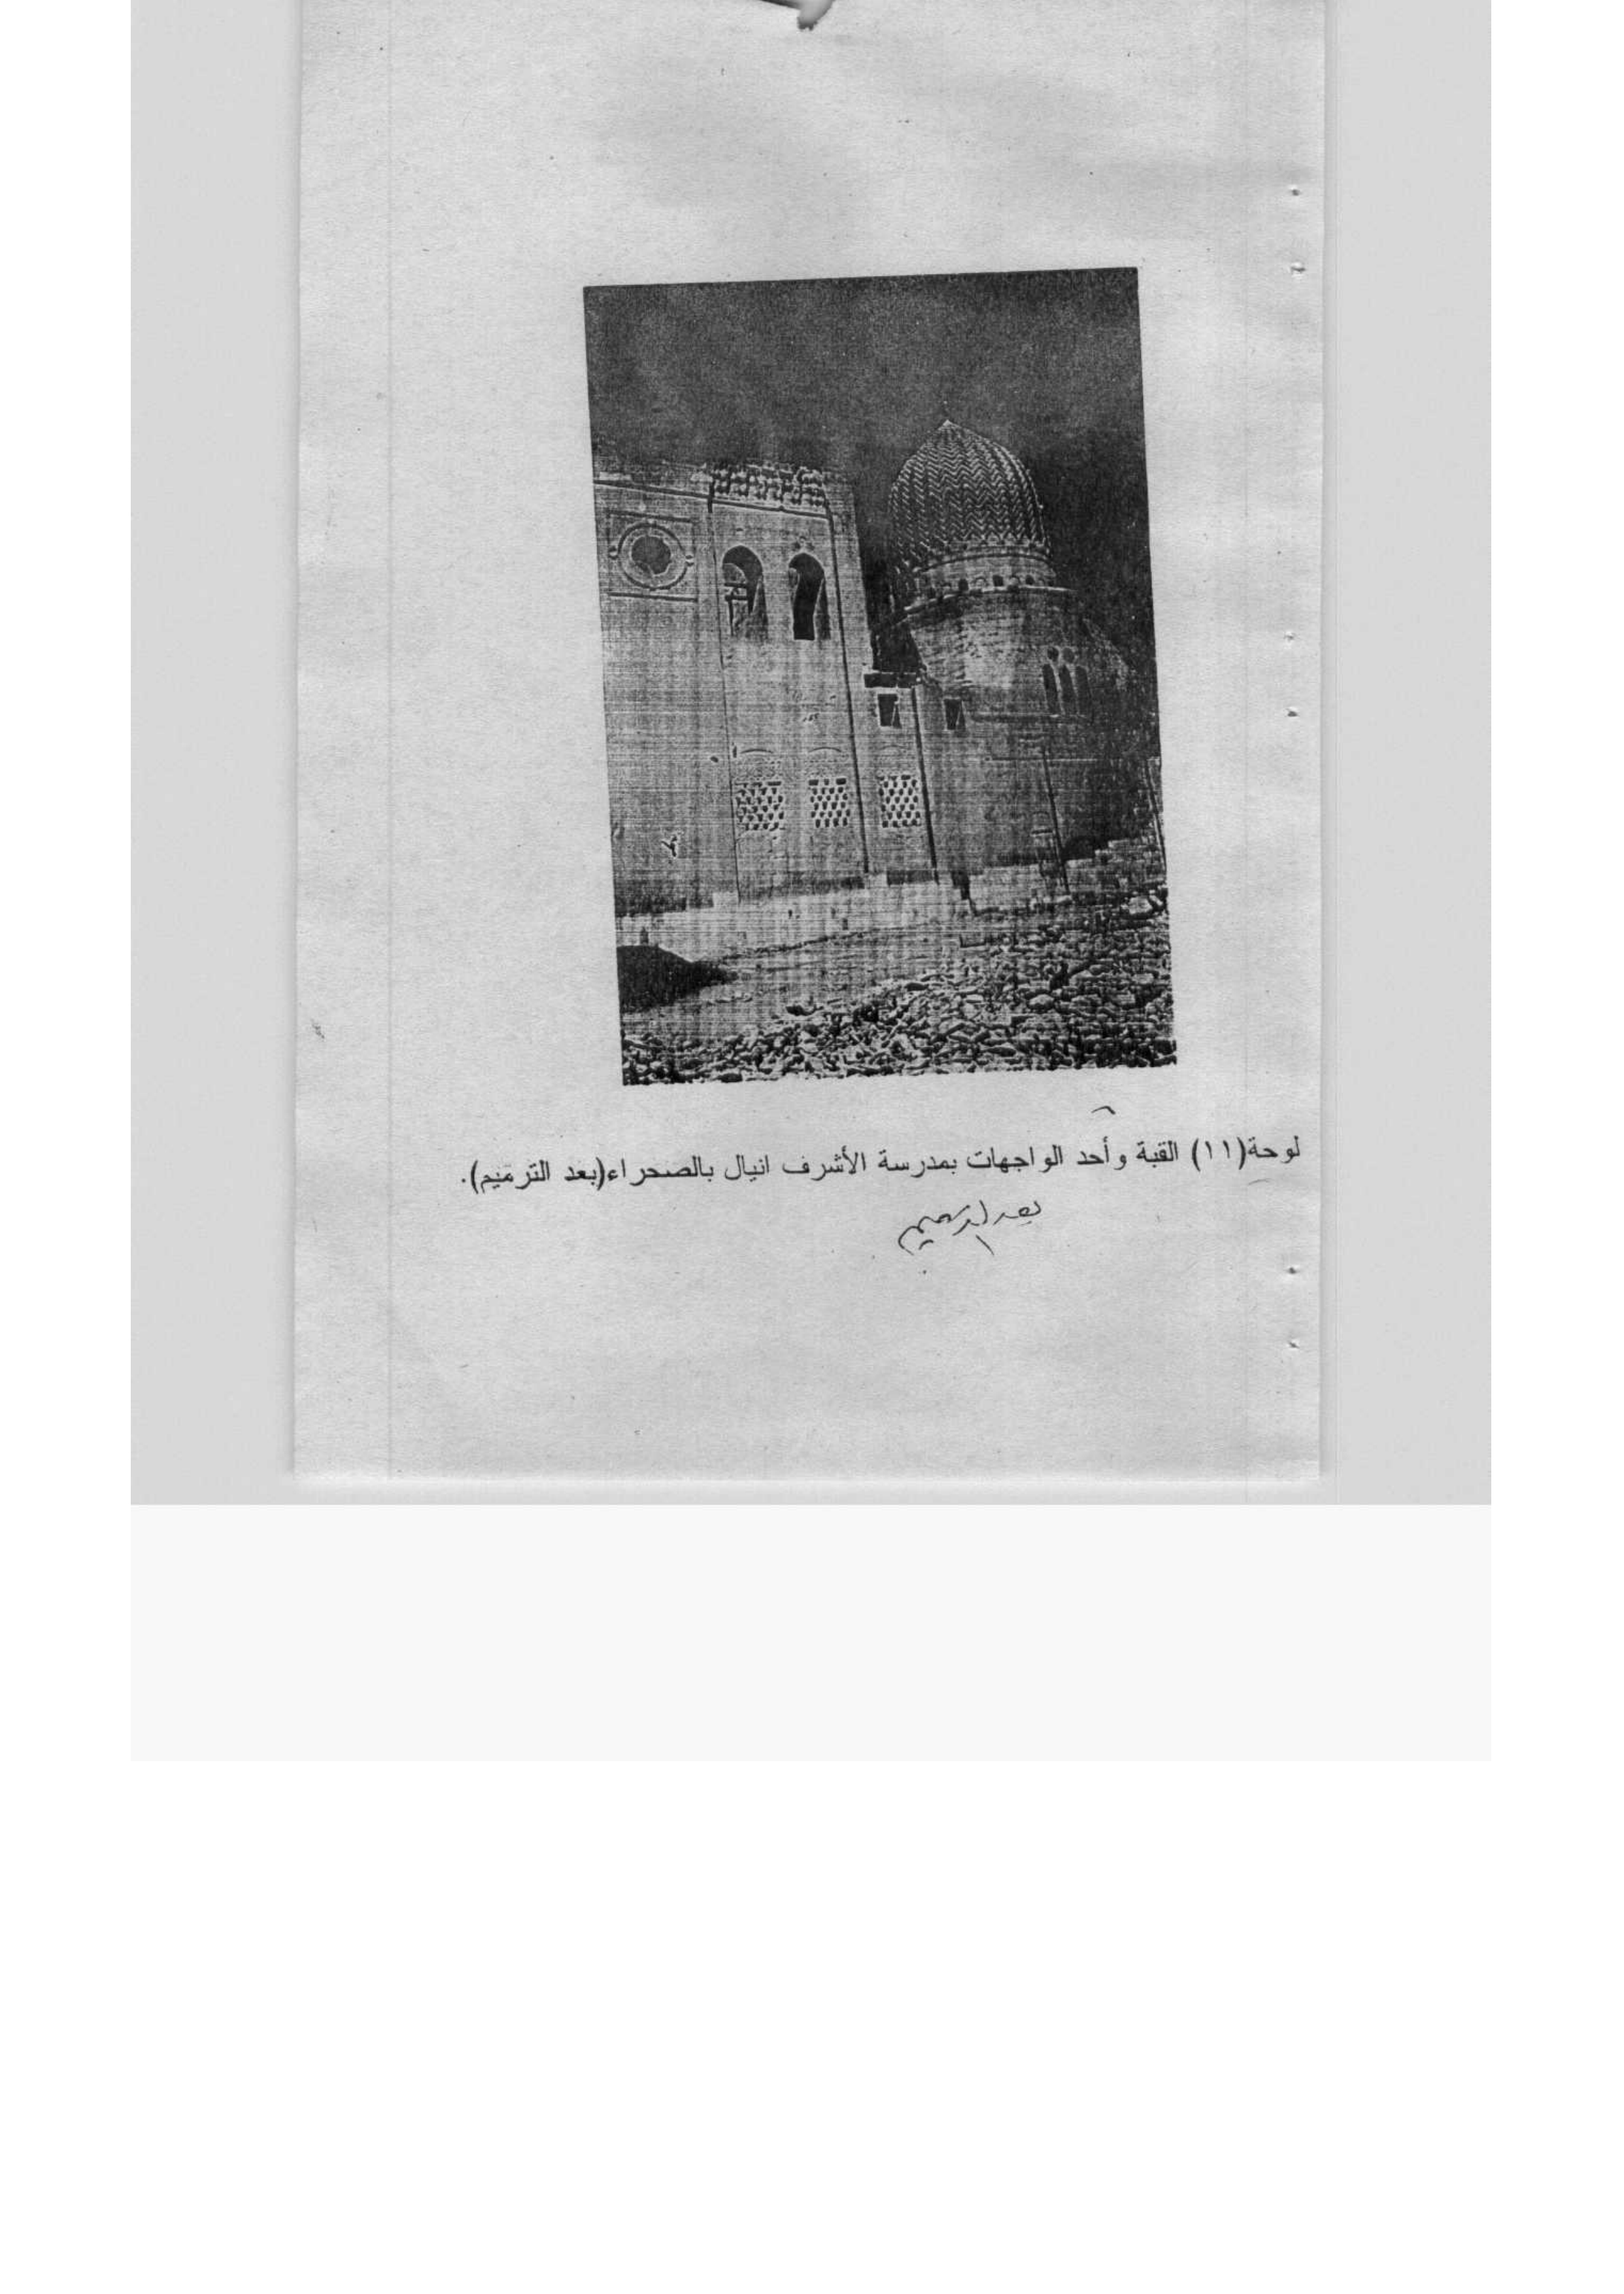 لوحة(١١) القبة وأحد الواجهات بمدرسة الأشرف انيال بالصحراء(بعد الترميم).
بعد الترميم